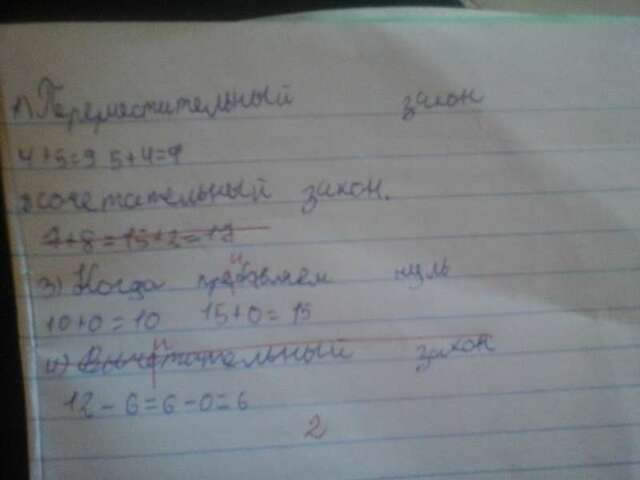 1) Переместительный закон
4+5=9 5+4=9
2 сочетательный закон.
7+8=15+2=17
3) Когда прибавляем нуль
10+0=10 15+0=15
4) Вычитательный закон
12-6=6-0=6
2